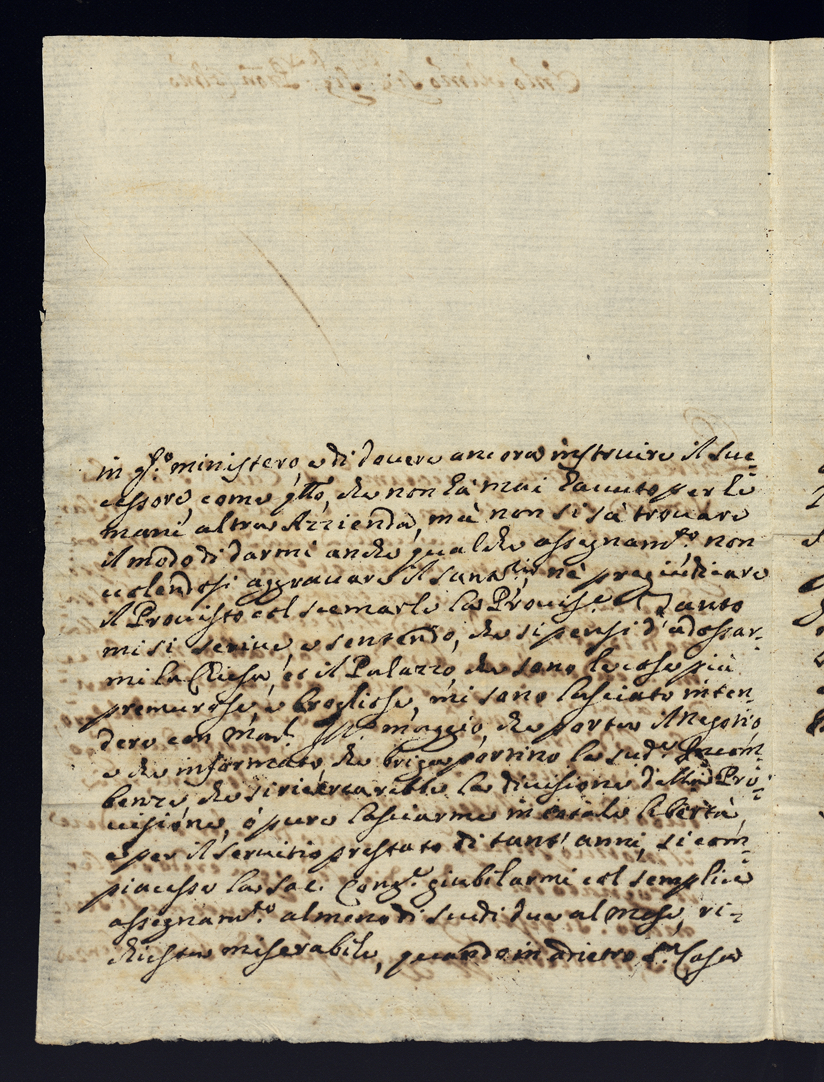 in qsto ministero, e di dovere ancora instruire il suc=
cessore, come qllo, che non hà mai hauuto per le
mani altra Azzienda, mà non si sà trouare
il modo di darmi anche qualche assegnam.to non
uolendosi aggrauare il Sant.rio nè pregiudicare
il Prouisto col scemarle la Prouis.e Tanto
mi si scriue, e sentendo, che si pensi d'adossar=
mi la Chiesa, et il Palazzo, che sono le cose più
premurose, e brogliose, mi sono lasciato inten=
dere con Mons.r Maggio, che porta il Negotio,
e che informato, che briga portino le sud.e Incom=
benze, che si ricercarebbe la diuisione della Pro=
uisione, ò pure lasciarme in totale libertà,
e per il Seruitio prestato di tant'anni, si com=
piacesse la Sac. Cong.e giubilarmi col semplice
assegnam.to almeno di scudi due al mese, ri=
chiesta miserabile, quando in adietro S.ta Casa